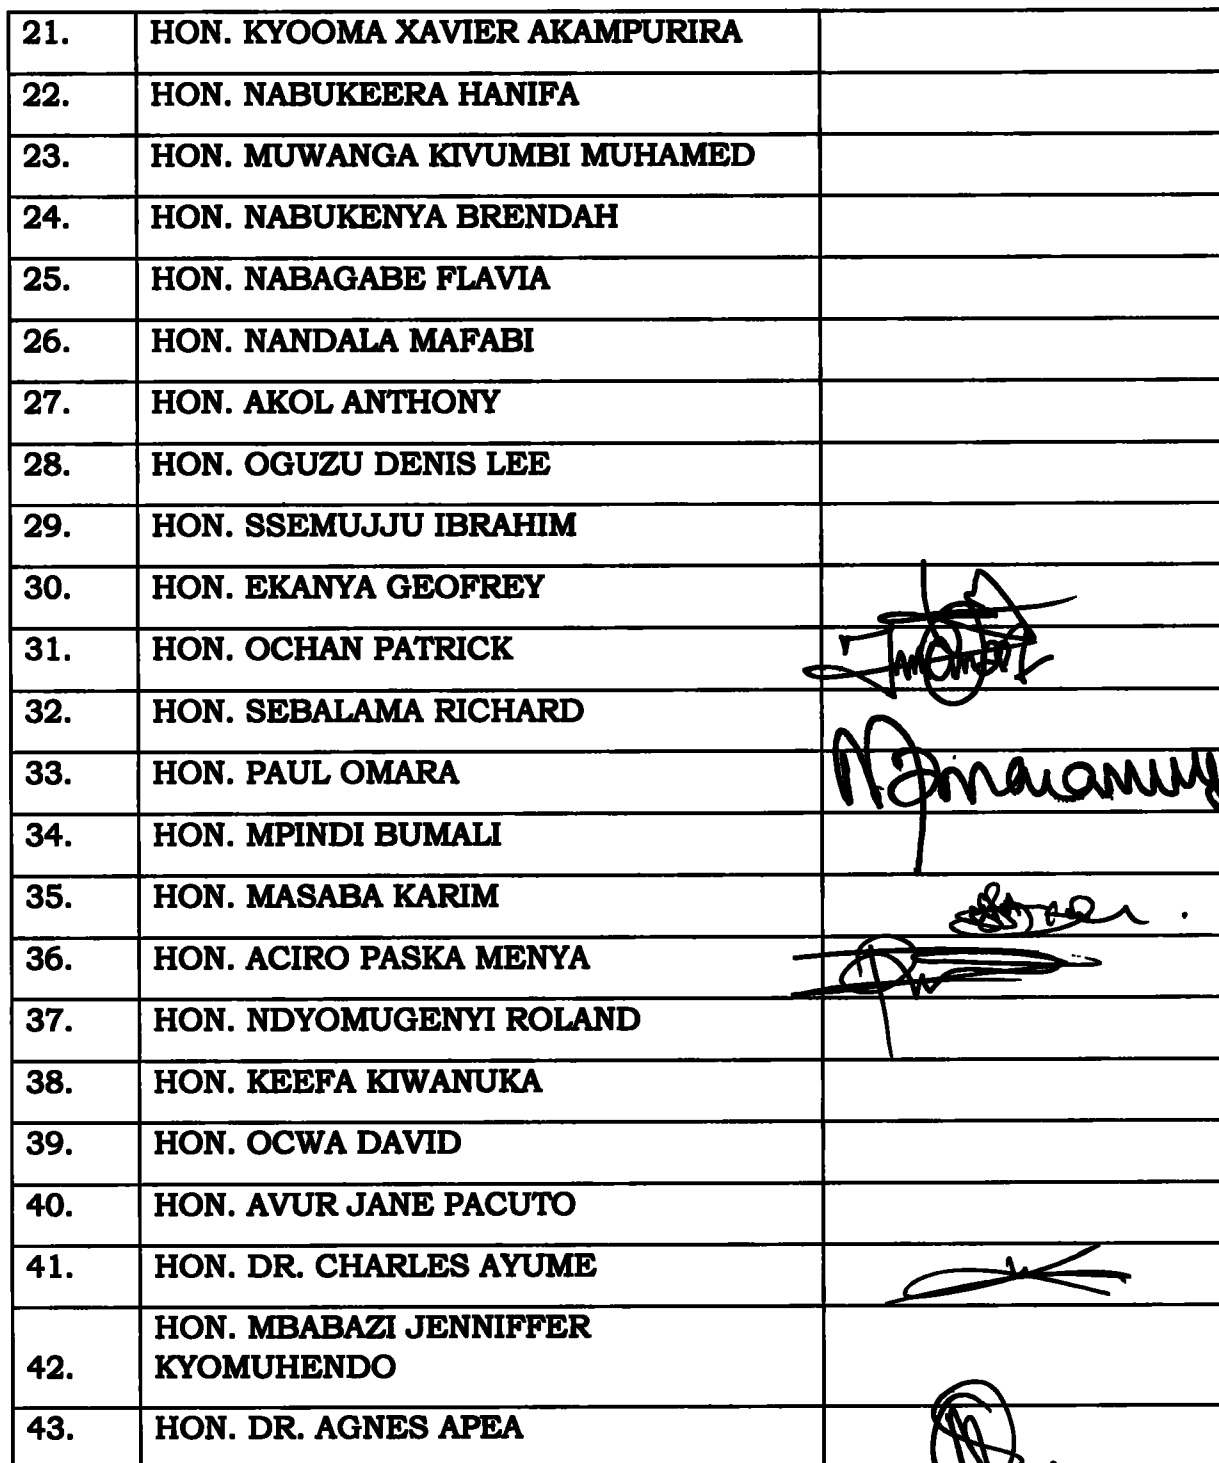 21. HON. KYOOMA XAVIER AKAMPURIRA
22. HON. NABUKEERA HANIFA
23. HON. MUWANGA KIVUMBI MUHAMED
24. HON. NABUKENYA BRENDAH
25. HON. NABAGABE FLAVIA
26. HON. NANDALA MAFABI
27. HON. AKOL ANTHONY
28. HON. OGUZU DENIS LEE
29. HON. SSEMUJJU IBRAHIM
30. HON. EKANYA GEOFREY
31. HON. OCHAN PATRICK
32. HON. SEBALAMA RICHARD
33. HON. PAUL OMARA
34. HON. MPINDI BUMALI
35. HON. MASABA KARIM
36. HON. ACIRO PASKA MENYA
37. HON. NDYOMUGENYI ROLAND
38. HON. KEEFA KIWANUKA
39. HON. OCWA DAVID
40. HON. AVUR JANE PACUTO
41. HON. DR. CHARLES AYUME
HON. MBABAZI JENNIFFER
42. KYOMUHENDO
43. HON. DR. AGNES APEA